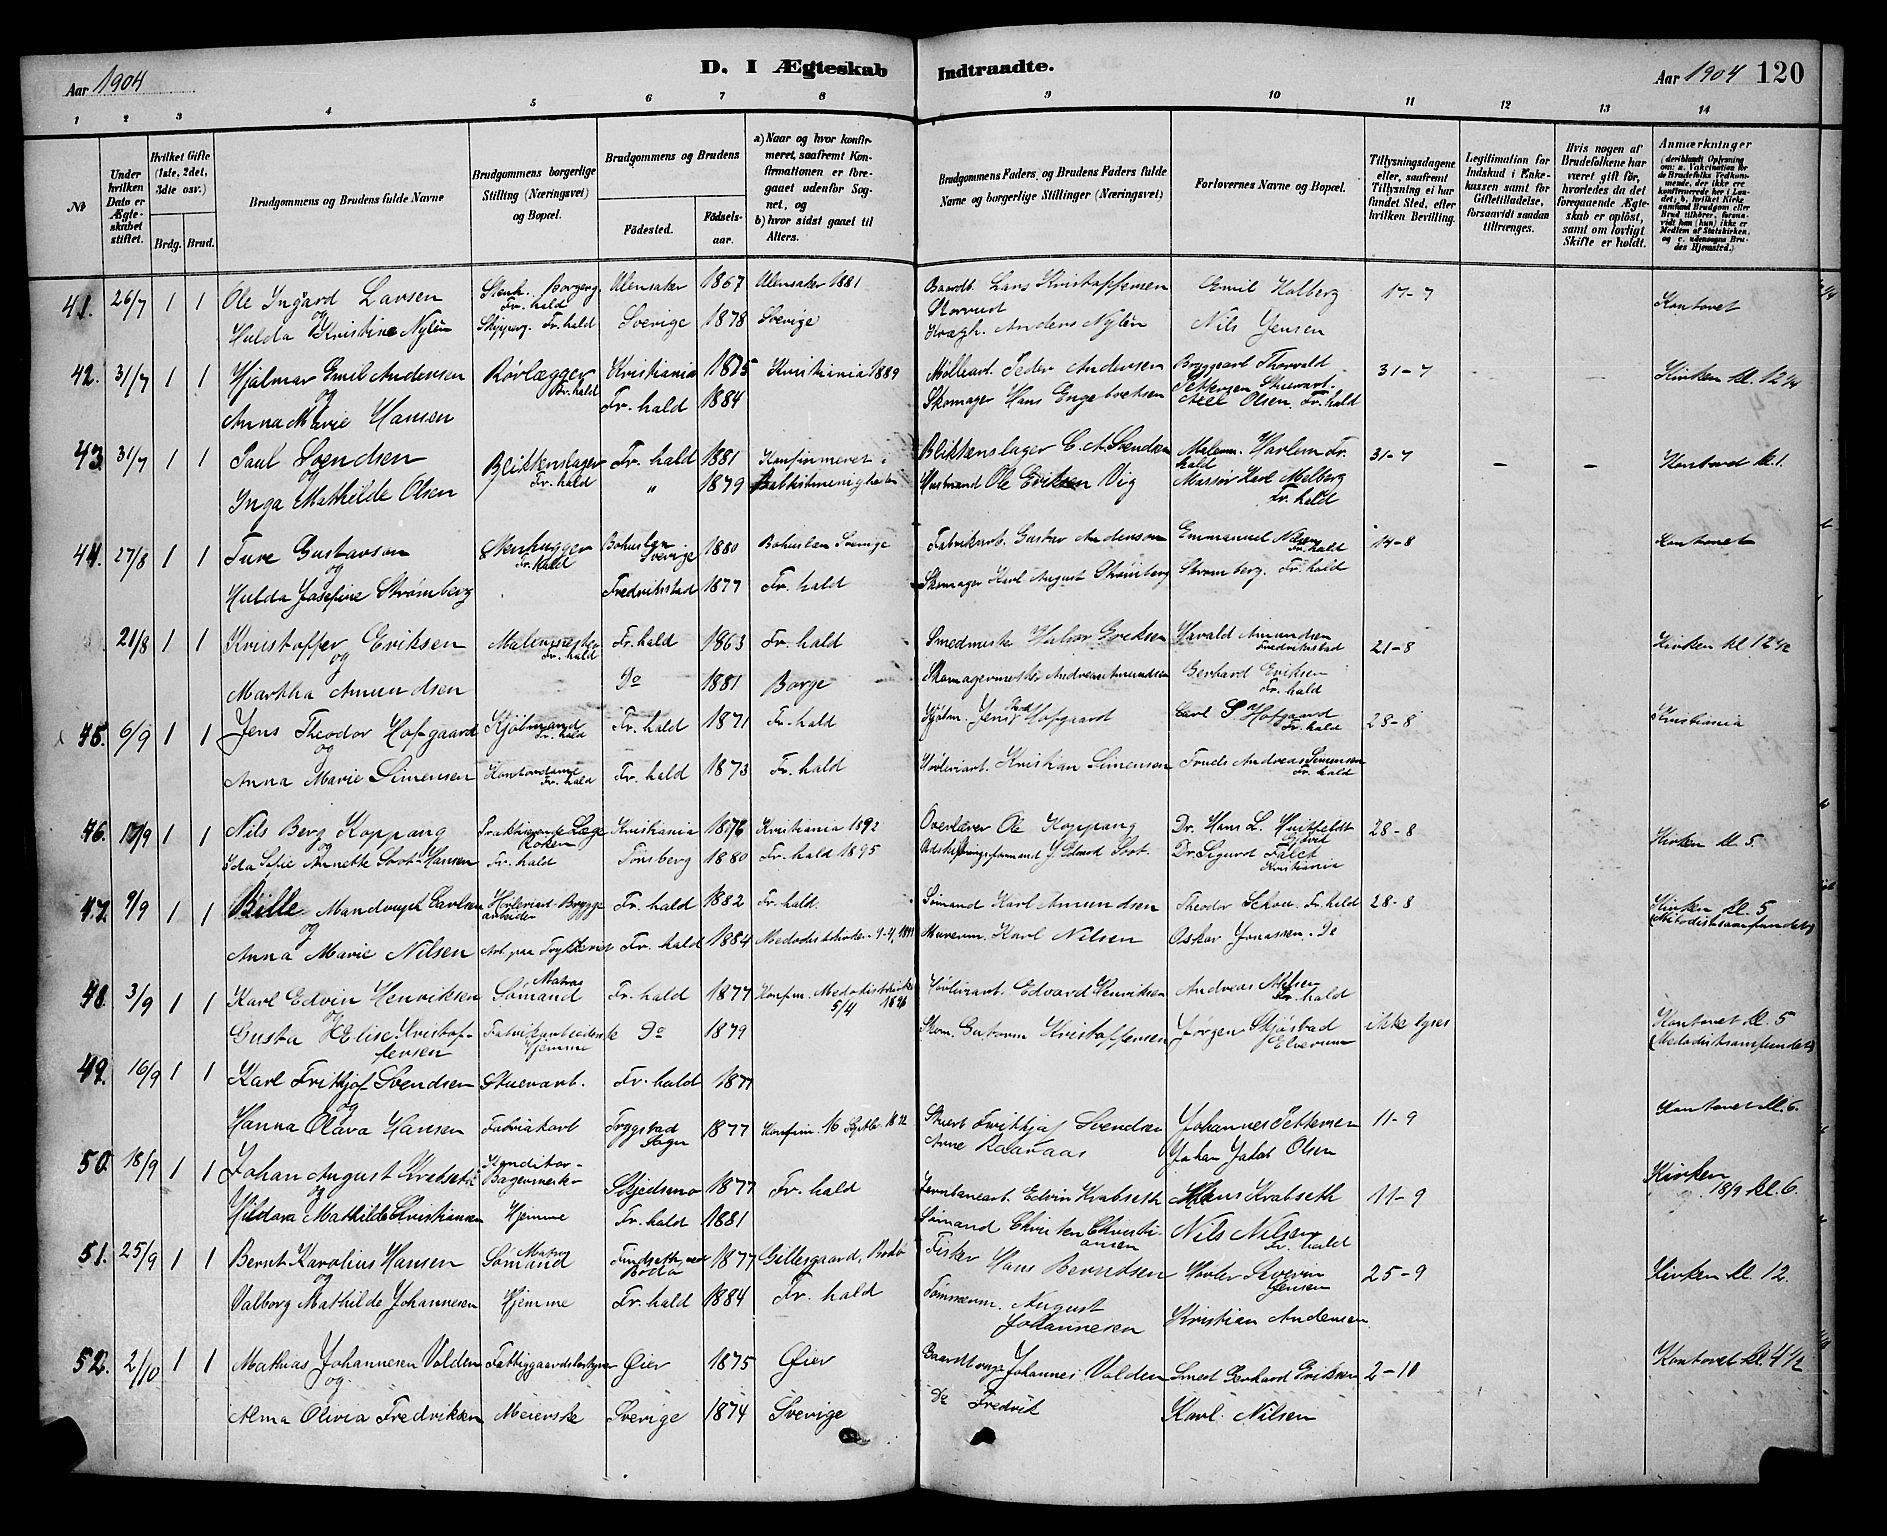 Aar 1904
D. I Ægteskab
Indtraadte.
Aar 1904 120
1 2 3 4 5 6 7 8 9 10 11 12 13 14
No
Under hvilken Dato er Ægteskabet stiftet.
Hvilket Gifte (1ste, 2det, 3die osv.)
Brdg. Brud.
Brudgommens og Brudens fulde Navne
Brudgommens borgerlige Stilling (Næringsvei) og Bopæl.
Brudgommens og Brudens
Fødested.
Fødselsaar.
a) Naar og hvor konfirmeret, saafremt Konfirmationen er foregaaet udenfor Sognet, og
b) hvor sidst gaaet til Alters.
Brudgommens Faders, og Brudens Faders fulde Navne og borgerlige Stillinger (Næringsvei)
Forlovernes Navne og Bopæl.
Tillysningsdagene eller, saafremt Tillysning ei har fundet Sted, efter hvilken Bevilling.
Legitimation for Indskud i Enkekassen samt for Giftetilladelse, forsaavidt saadan tiltrænges.
Hvis nogen af Brudefolkene har været gift før, hvorledes da det foregaaende Ægteskab er opløst, samt om lovligt Skifte er holdt.
Anmærkninger
41. 26/7 1 1 Ole Ingvard Larsen Stenh. Fr. hald Ulensaker 1867 Ulensaker 1881 Lars Kristoffersen Emil Holberg 17-7 Kontoret
og
Hulda Kristine Nylén Fr. hald Sverige 1878 Sverige Anders Nylén Nils Jensen
42. 31/7 1 1 Hjalmar Emil Andersen Rørlægger Fr. hald Kristiania 1875 Kristiania 1889 Møllearb. Peder Andersen Bryggearb. Thorvald Pettersen 31-7 - - Kirken kl. 12 1/4
og
Anna Marie Hansen Fr. hald 1884 Skomager Hans Engebretsen Olsen. Fr. hald
43. 31/7 1 1 Paul Svendsen Blikkenslager Fr. hald Fr. hald 1881 Konfirmeret i Blikkenslager C. A. Svendsen Malerm. Fr. hald 31-7 - - Kontoret kl. 1.
og
Inga Mathilde Olsen " 1879 Babtistmenigheden Ole Eriksen Vig Karl Melberg Fr. hald
44. 27/8 1 1 Ture Gustavson Stenhugger Fr. hald Bohuslen Sverige 1880 Bohuslen Sverige Fabrikarb. Gustav Anderson Emmanuel Fr. hald 14-8 Kontoret
og
Hulda Josefine Strømberg Fredrikstad 1877 Fr. hald Skomager Karl August Strømberg Strømberg. Fr. hald
21/8 1 1 Kristoffer Eriksen Malermester Fr. hald Fr. hald 1863 Fr. hald Smedmester Halvor Eriksen Harald Amundsen Fredrikstad 21-8 Kirken kl. 12 1/2
og
Martha Amundsen Do 1881 Borge Skomagermester Andreas Amundsen Gerhard Eriksen Fr. hald
45. 6/9 1 1 Jens Theodor Hofgaard Kjøbmand Fr. hald Fr. hald 1871 Fr. hald Kjøbm. Jens Hofgaard Carl S. Hofgaard Fr. hald 28-8 Kristiania
og
Anna Marie Simensen Kontordame Fr. hald Fr. hald 1873 Fr. hald Høvleriarb. Kristian Simensen Andreas Simensen Fr. hald
46. 17/9 1 1 Nils Berg Koppang Praktiserende Læge Røken Kristiania 1876 Kristiania 1892 Overlærer Ole Koppang Dr. Hans L. Huitfeldt Gjøvik 28-8 Kirken kl. 5.
og
Ida Annette Soot Hansen Fr. hald Tønsberg 1880 Fr. hald 1895 Udskiftningsformand Edvard Soot. Dr. Sigurd Falck Kristiania
47. 9/9 1 1 Bille Mandrup Carlsen Bryggearbeider Fr. hald 1882 Fr. hald. Sømand Karl Amundsen Theodor Schou. Fr. hald 28-8 Kirken kl. 5 (Metodistsamfundet)
og
Anna Marie Nilsen Arb. paa Trykkeriet Fr. hald 1884 Murerm. Karl Nilsen Oskar Jonassen. Do
48. 3/9 1 1 Karl Edvin Henriksen Matros Sømand Fr. hald 1877 Konfirm. Metodistkirken 5/4 1896 Høvleriarb. Edvard Henriksen Andreas Nilsen Fr. hald
og
Gusta Elise Kristoffersen Fabrikarbeiderske Hjemme Do 1879 Kristoffersen Jørgen Skjøstad Elverum ikke lyses Kontoret kl. 5 (Metodistsamfundet)
49. 16/9 1 1 Karl Frithjof Svendsen Stuerarb. Fr. hald 1877
og
Hanna Olava Hansen Fabrikarb Tryggstad Sogn 1877 Konfirm. 16 Septbr 1892 Frithjof Svendsen Johannes Pettersen 11-9 Kontoret kl. 6.
Johan Jakob Olsen
50. 18/9 1 1 Johan August Konditor- Bagermester Skjedsmo 1877 Fr. hald Jernbanearb. Edvin Krabseth Hans Krabseth 11-9 Kirken 18/9 kl. 6.
og
Mathilde Christiansen Hjemme Fr. hald 1881 Sømand Christen Christiansen Nils Nilsen Fr. hald
51. 25/9 1 1 Bernt Karolius Hansen Matros Sømand Bodø 1877 Gillesgaard, Bodø Fisker Hans Berndsen Severin Jensen 25-9 Kirken kl. 12.
og
Valborg Mathilde Johannesen Hjemme Fr. hald 1884 Fr. hald Tømmerm. August Johannesen Kristian Andersen
52. 2/10 1 1 Mathias Johannesen Volden Fattiggaardsbestyrer Øier 1875 Øier Johannes Volden Smed Gerhard Eriksen 2-10 Kontoret kl. 4 1/2
og
Alma Olivia Fredriksen Meierske Sverige 1874 Sverige Do Fredrik Karl Nilsen